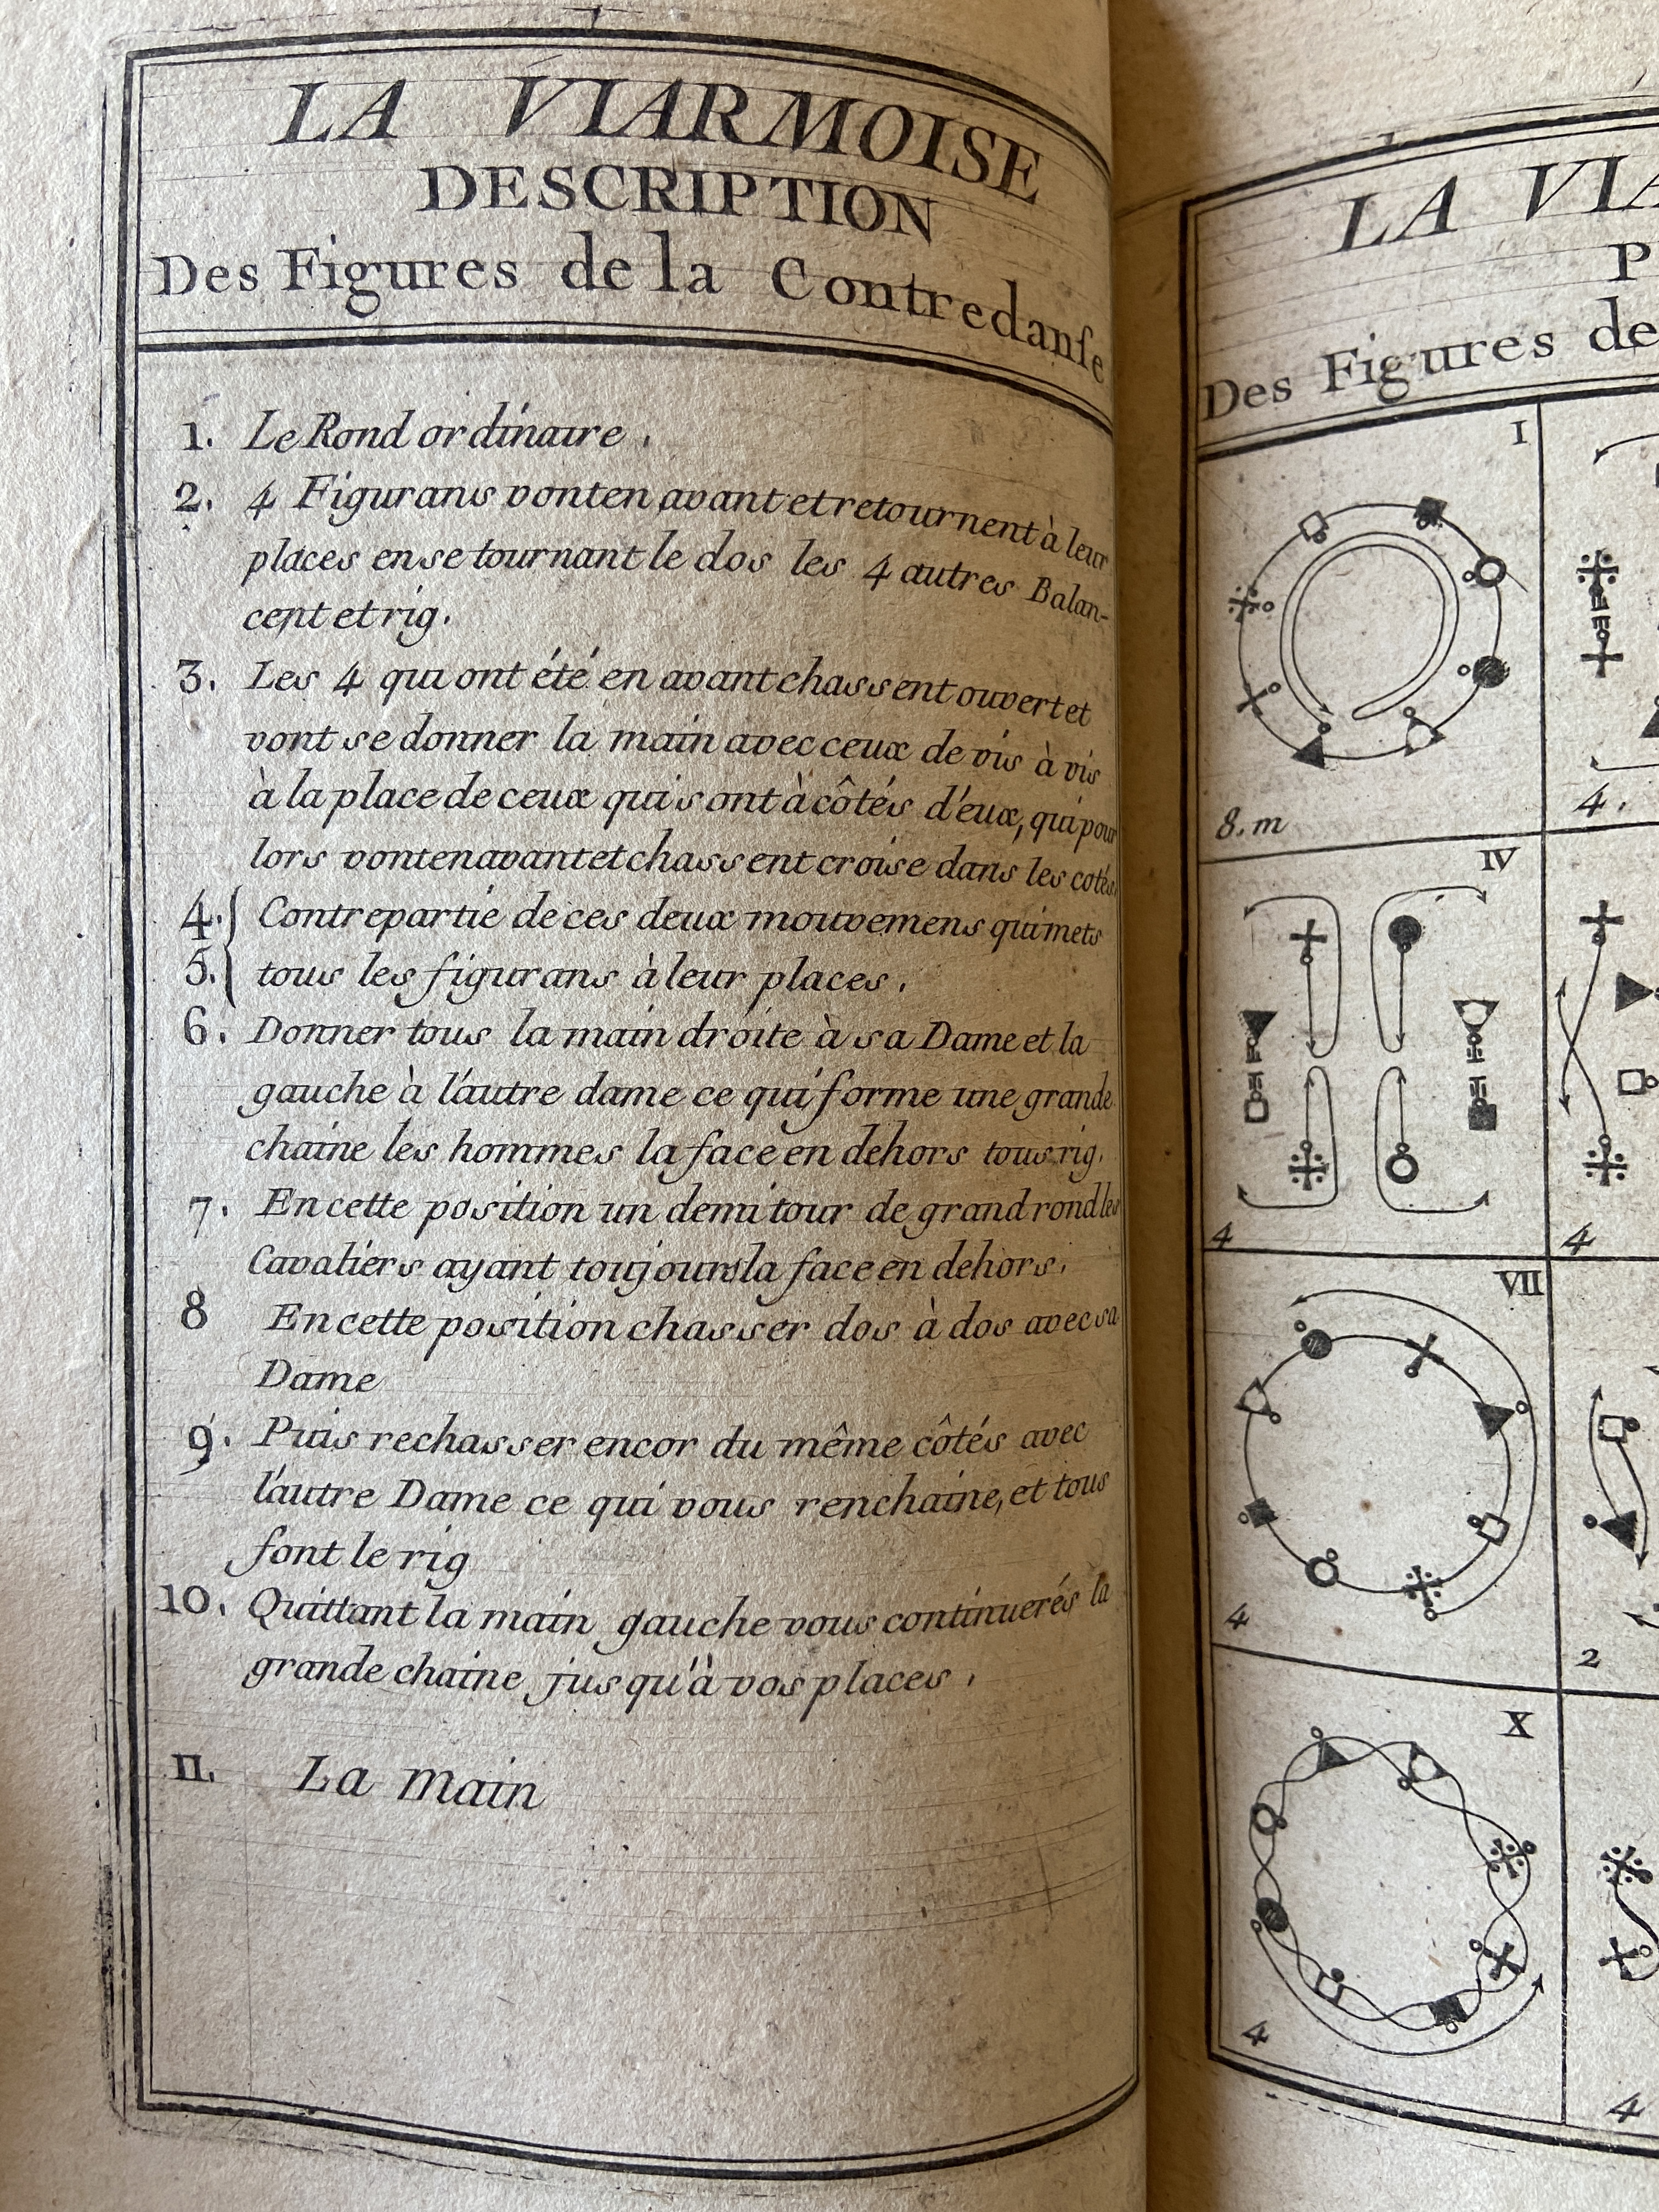 LA VIARMOISE
DESCRIPTION
Des Figures de la Contredanſe
1. Le Rond ordinaire.
2. 4 Figurans vont en avant et retournent à leur
places en se tournant le dos les 4 autres Balan-
cent et rig.
3. Les 4 qui ont été en avant chassent ouvert et
vont se donner la main avec ceux de vis à vis
à la place de ceux qui sont à côtés d'eux, qui pour
lors vont en avant et chassent croise dans les cotés
4. Contrepartie de ces deux mouvemens qui mets
5. tous les figurans à leur places.
6. Donner tous la main droite à sa Dame et la
gauche à l'autre dame ce qui forme une grande
chaine les hommes la face en dehors tous rig.
7. En cette position un demi tour de grand rond les
Cavaliers ayant toujours la face en dehors.
8 En cette position chasser dos à dos avec sa
Dame
9. Puis rechasser encor du même côtés avec
l'autre Dame ce qui vous renchaine, et tous
font le rig
10. Quittant la main gauche vous continuerés la
grande chaine jusqu'à vos places.
11. La main
LA VIA
P
Des Figures de
I
8. m
4.
IV
4
4
VII
4
2
X
4
4